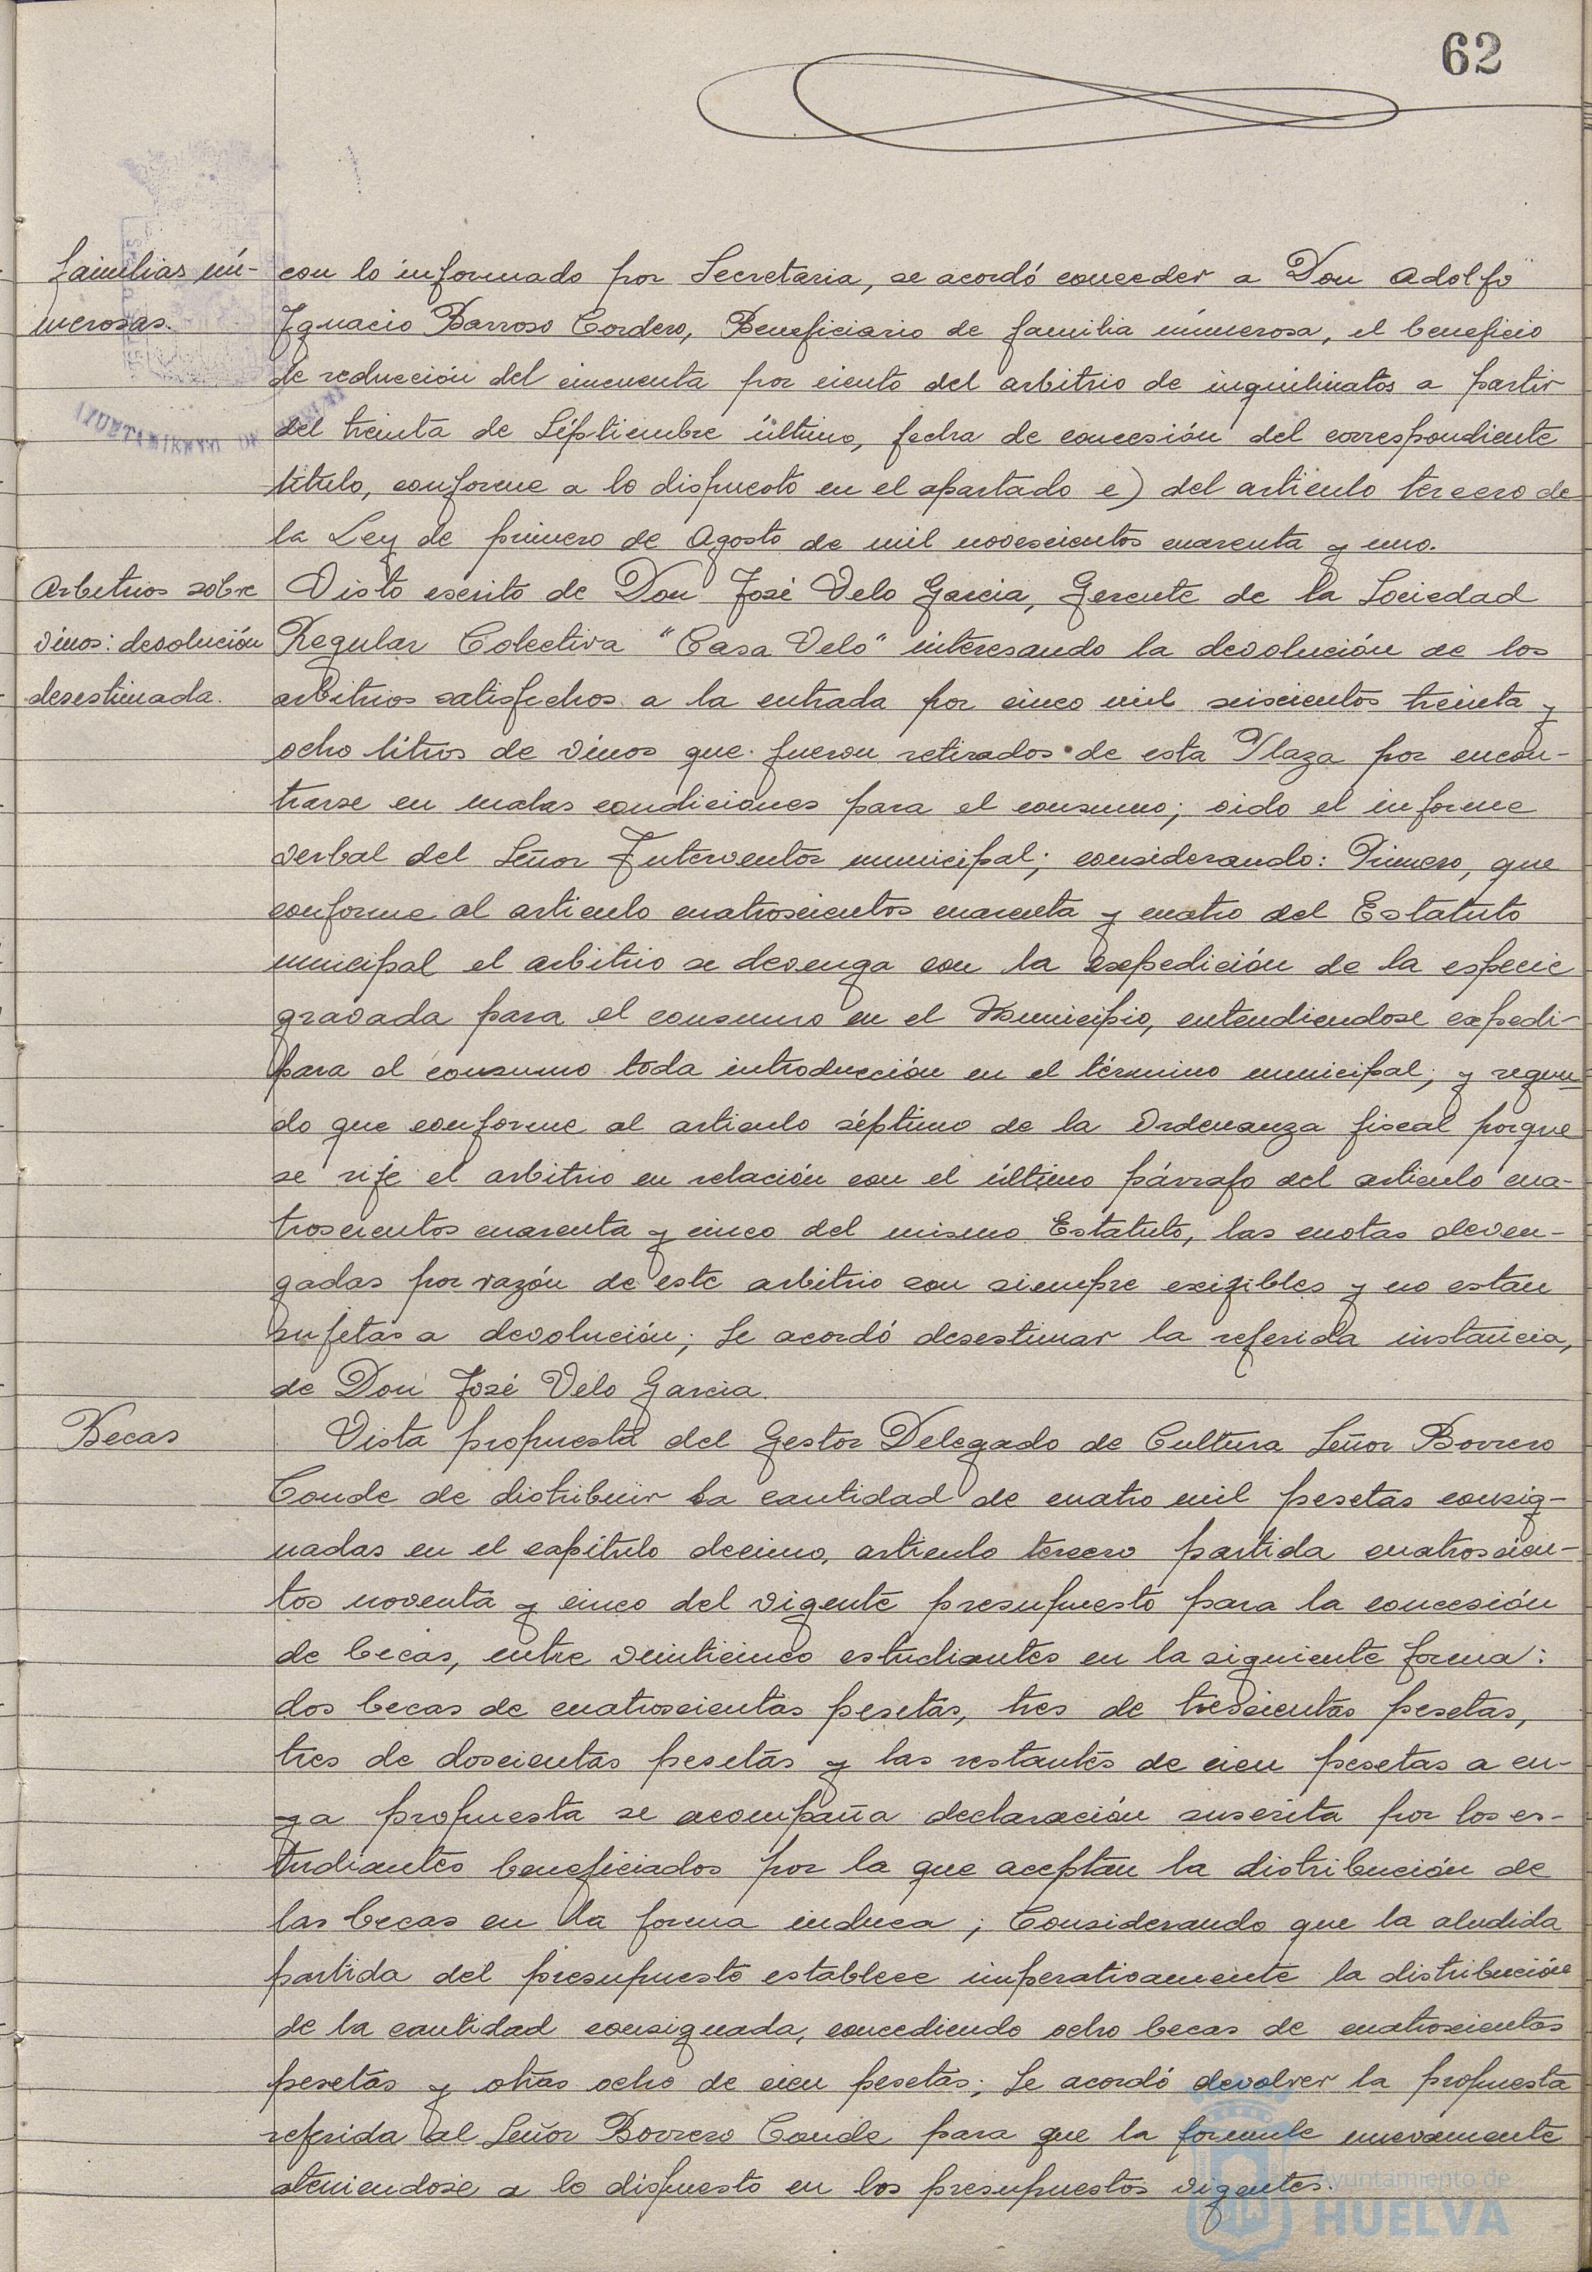 62
familias nú-
merosas.
con lo informado por Secretaria, se acordó conceder a Don Adolfo
Ignacio Barroso Cordero, Beneficiario de familia númerosa, el beneficio
de reducción del cincuenta por ciento del arbitrio de inquilinatos a partir
del treinta de Séptiembre último, fecha de concesión del correspondiente
titulo, conforme a lo dispuesto en el apartado e) del articulo tercero de
la Ley de primero de Agosto de mil novescientos cuarenta y uno.
Arbitrios sobre
vinos: devolución
desestimada.
Visto escrito de Don José Velo Garcia, Gerente de la Sociedad
Regular Colectiva "Casa Velo" interesando la devolución de los
arbitrios satisfechos a la entrada por cinco mil seiscientos treinta y
ocho litros de vinos que fueron retirados de esta Plaza por encon-
trarse en malas condiciones para el consumo; oido el informe
verbal del Señor Interventor municipal; considerando: Primero, que
conforme al articulo cuatroscientos cuarenta y cuatro del Estatuto
municipal el arbitrio se devenga con la expedición de la especie
gravada para el consumo en el Municipio, entendiendose expedi-
para el consumo toda introducción en el término municipal; y segun-
do que conforme al articulo séptimo de la Ordenanza fiscal porque
se rije el arbitrio en relación con el último párrafo del articulo cua-
troscientos cuarenta y cinco del mismo Estatuto, las cuotas deven-
gadas por razón de este arbitrio son siempre exigibles y no estan
sujetas a devolución; Se acordó desestimar la referida instancia,
de Don José Velo Garcia.
Becas
Vista propuesta del Gestor Delegado de Cultura Señor Borrero
Conde de distribuir la cantidad de cuatro mil pesetas consig-
nadas en el capítulo decimo, articulo tercero partida cuatroscien-
tos noventa y cinco del vigente presupuesto para la concesión
de becas, entre veinticinco estudiantes en la siguiente forma:
dos becas de cuatroscientas pesetas, tres de trescientas pesetas,
tres de doscientas pesetas y las restantes de cien pesetas a cu-
ya propuesta se acompaña declaración suscrita por los es-
tudiantes beneficiados por la que aceptan la distribución de
las becas en la forma induca; Considerando que la aludida
partida del presupuesto establece imperativamente la distribución
de la cantidad consignada, concediendo ocho becas de cuatroscientas
pesetas y otras ocho de cien pesetas; Se acordó devolver la propuesta
referida al Señor Borrero Conde para que la formule nuevamente
ateniendose a lo dispuesto en los presupuestos vigentes.
AYUNTAMIENTO DE
Ayuntamiento de
HUELVA